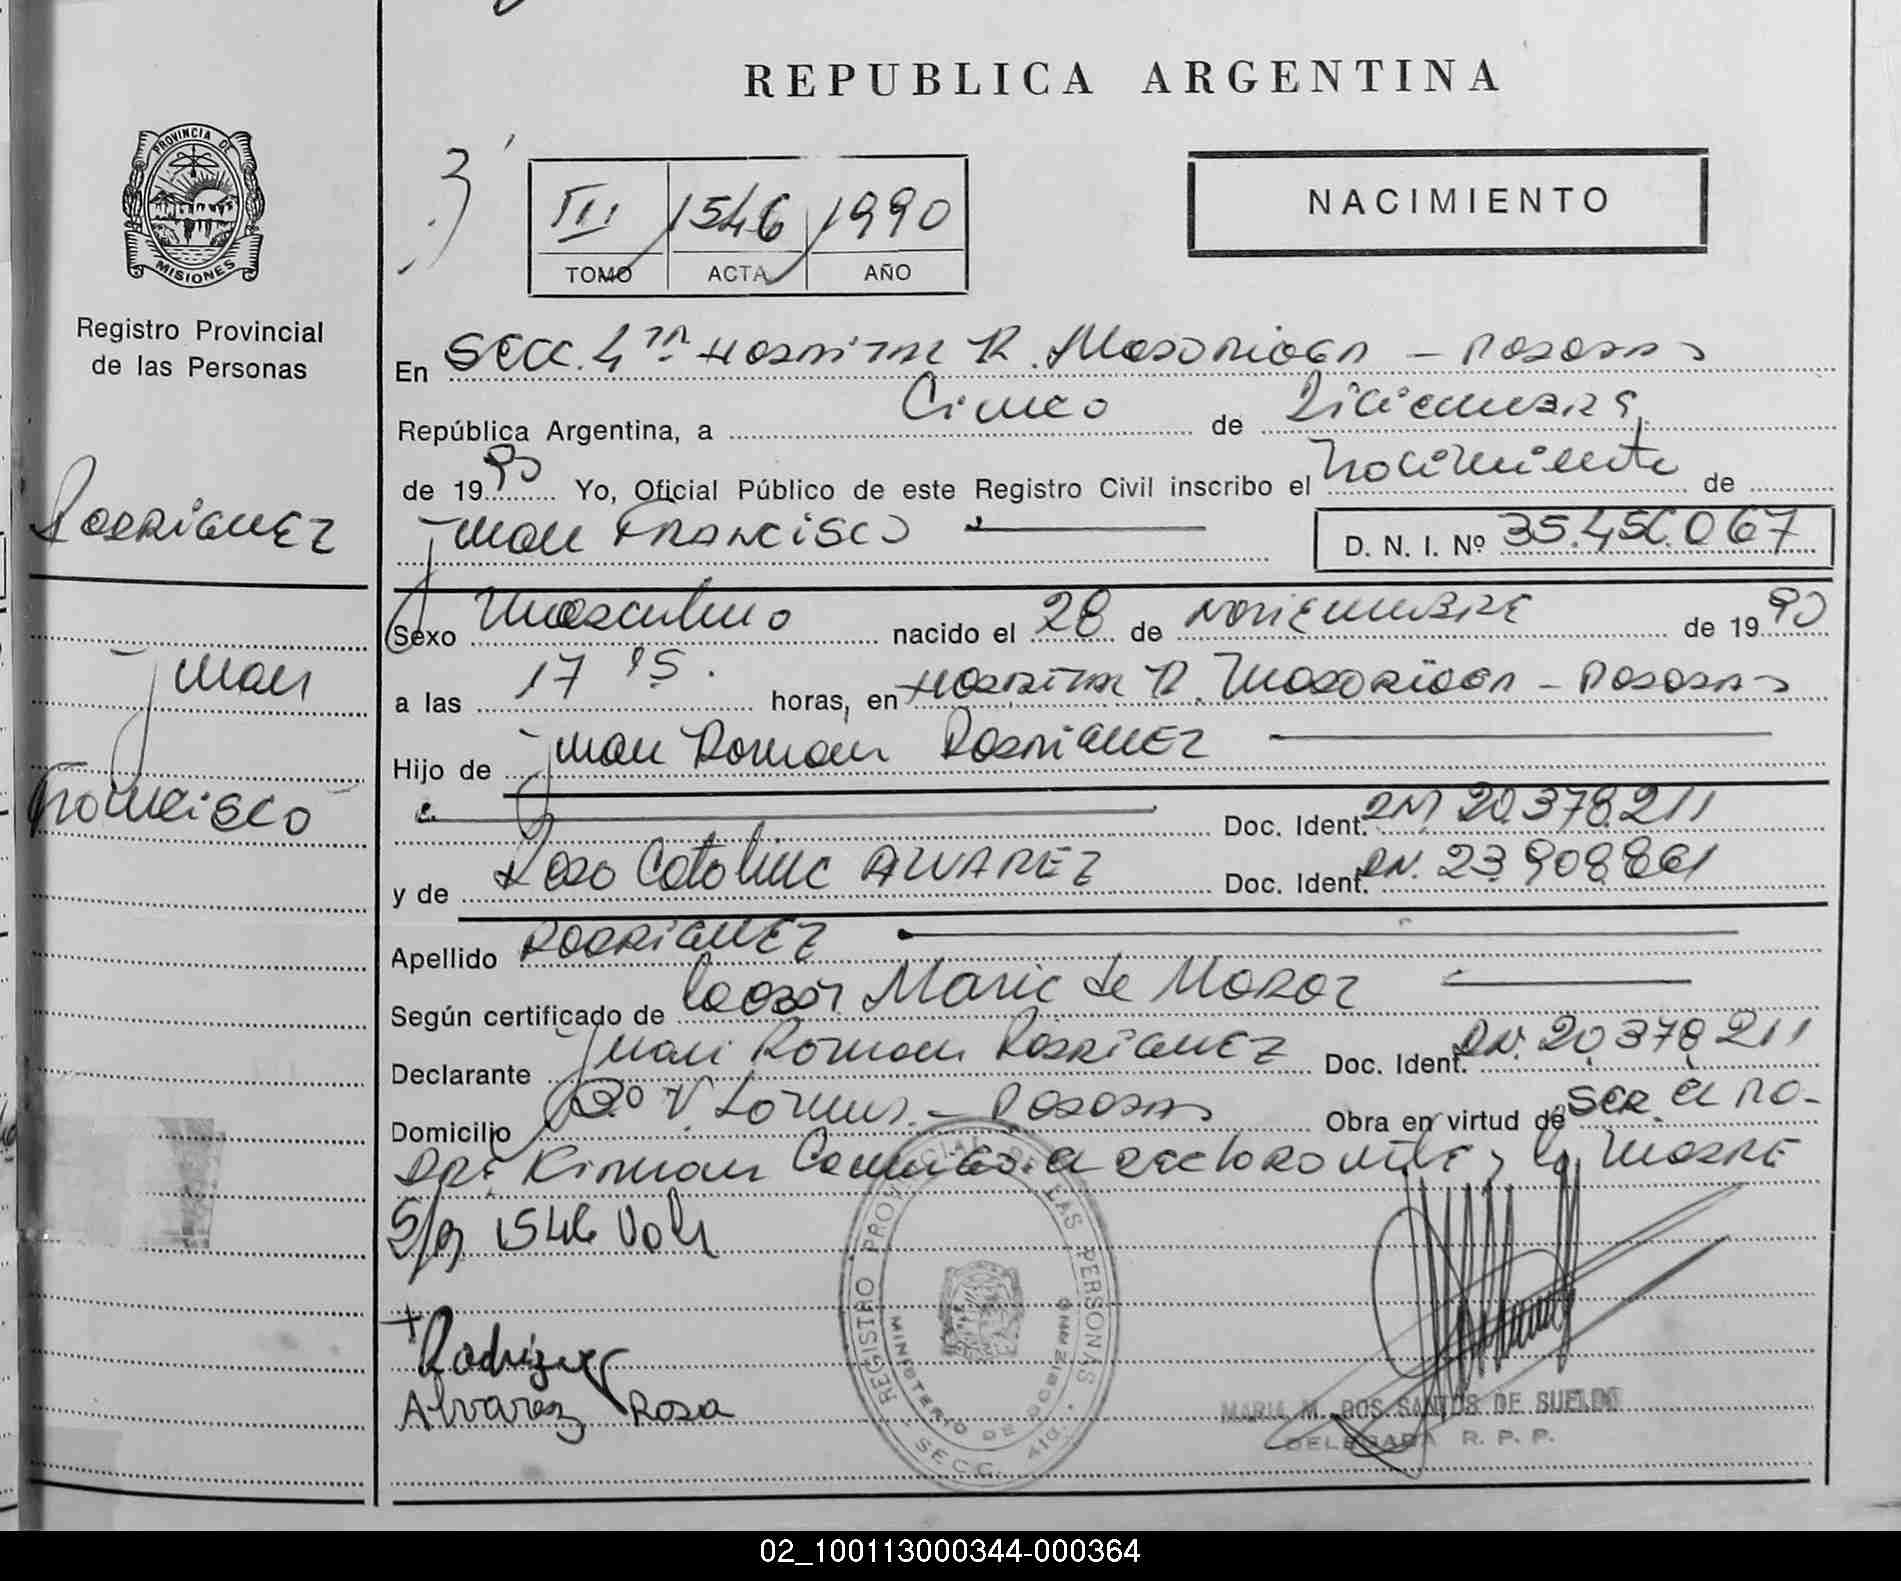 REPUBLICA ARGENTINA
PROVINCIA DE
MISIONES
Registro Provincial
de las Personas
III 1546 1990
TOMO ACTA AÑO
NACIMIENTO
En Secc. 4ta Hospital R. Madariaga - Posadas
República Argentina, a Cinco de Diciembre
de 1990 Yo, Oficial Público de este Registro Civil inscribo el Nacimiento de
Rodriguez
Juan Francisco
D. N. I. Nº 35.456.067
Sexo Masculino nacido el 28 de Noviembre de 1990
Juan
a las 17 15. horas, en Hospital R. Madariaga - Posadas
Hijo de Juan Roman Rodriguez
Francisco
Doc. Ident. DNI 20.378.211
y de Rosa Catalina ALVAREZ Doc. Ident. DN. 23.908.861
Apellido Rodriguez
Según certificado de Maric de Moroz
Declarante Juan Roman Rodriguez Doc. Ident. DN. 20.378.211
Domicilio Bº V. - Posadas Obra en virtud de ser el pa-
dre. Firman el declarante y la madre
1546 Vale
Rodriguez
Alvarez Rosa
REGISTRO PROVINCIAL DE LAS PERSONAS
MINISTERIO DE GOBIERNO
SECC. 4ta.
MARIA M. DOS SANTOS DE SUELDO
DELEGADA R. P. P.
02_100113000344-000364